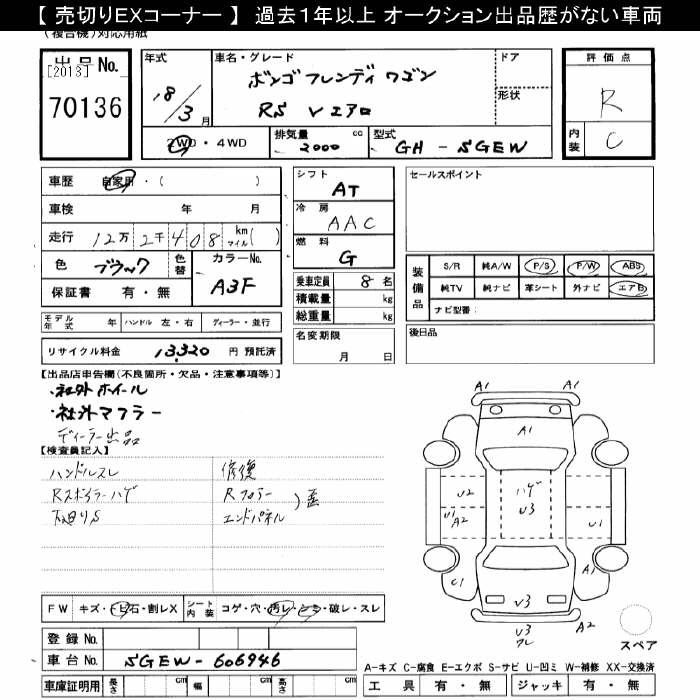 【 売切りEXコーナー 】 過去1年以上 オークション出品歴がない車両
(複合機)対応用紙
出品 No.
[2013]
70136
年式
18/3月
車名・グレード
ボンゴ フレンディ ワゴン
RS Vエアロ
ドア
形状
評価点
R
内装
C
2WD・4WD
排気量
2000
cc
型式
GH - SGEW
車歴 自家用・( )
車検 年 月
走行 12万 2千 408 km マイル( )
色 ブラック 色替
カラーNo.
A3F
保証書 有・無
シフト
AT
冷房
AAC
燃料
G
乗車定員 8 名
積載量 kg
総重量 kg
セールスポイント
装備品
S/R 純A/W P/S P/W ABS
純TV 純ナビ 革シート 外ナビ エアB
ナビ型番:
モデル年式 年 ハンドル 左・右 ディーラー・並行
リサイクル料金 13,320 円 預託済
名変期限
月 日
後日品
【出品店申告欄(不良箇所・欠品・注意事項等)】
・社外ホイール
・社外マフラー
ディーラー出品
【検査員記入】
ハンドルスレ
Rスポイラーハゲ
下廻りS
修復
Rフロアー
エンドパネル
)歪
A1
A1
A1
U2
ハゲ
U3
U1
A2
U1
C1
A1
U3
U3
ワレ
A1
スペア
FW キズ・トビ石・割レX シート内装 コゲ・穴・汚レ・シミ・破レ・スレ
登録 No.
車台 No. SGEW-606946
車庫証明用 長さ cm 幅 cm 高さ cm
A-キズ C-腐食 E-エクボ S-サビ U-凹ミ W-補修 XX-交換済
工具 有・無 ジャッキ 有・無